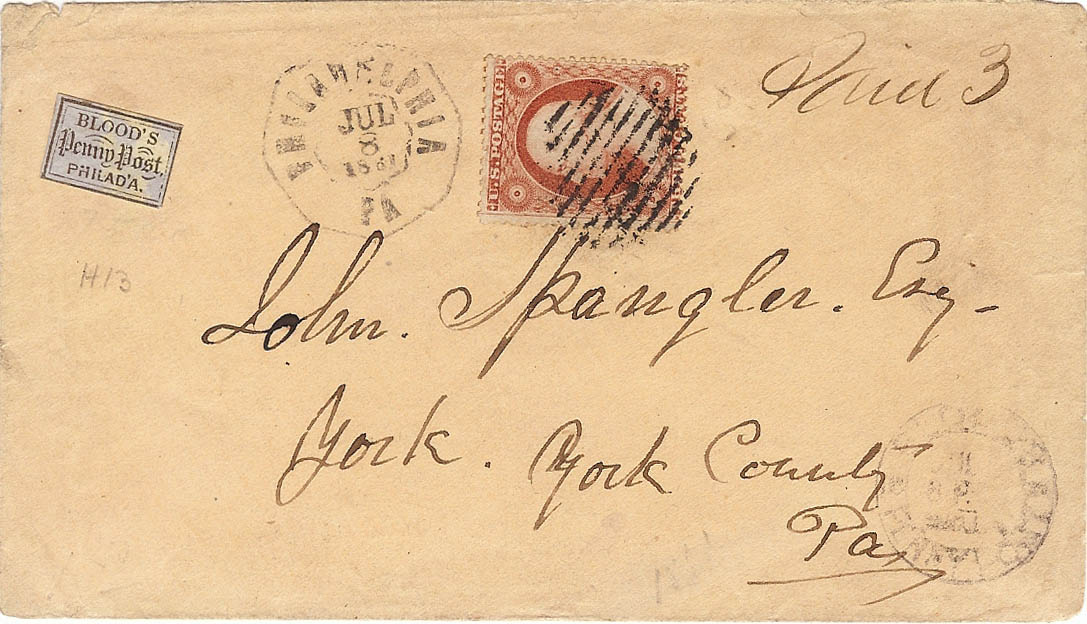 BLOOD'S
Penny Post,
PHILAD'A.
PHILADELPHIA
JUL
8
PA
U.S. POSTAGE
Paid 3
H13
John. Spangler. Esq-
York. York County
Pa